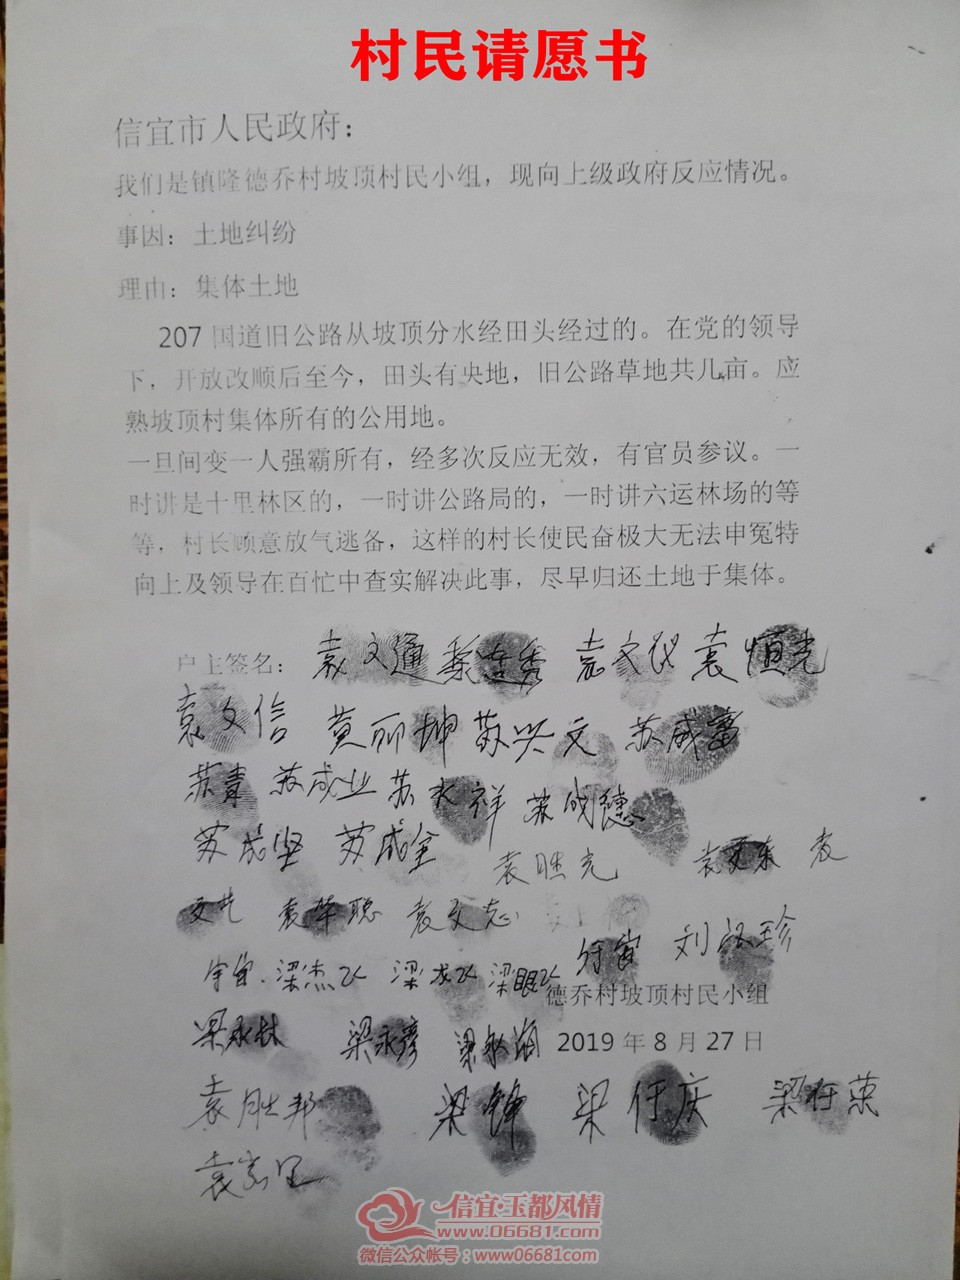 村民请愿书
信宜市人民政府：
我们是镇隆德乔村坡顶村民小组，现向上级政府反应情况。
事因：土地纠纷
理由：集体土地
207国道旧公路从坡顶分水经田头经过的。在党的领导
下，开放改顺后至今，田头有央地，旧公路草地共几亩。应
熟坡顶村集体所有的公用地。
一旦间变一人强霸所有，经多次反应无效，有官员参议。一
时讲是十里林区的，一时讲公路局的，一时讲六运林场的等
等，村长顾意放气逃备，这样的村长使民奋极大无法申冤特
向上及领导在百忙中查实解决此事，尽早归还土地于集体。
户主签名： 袁文通 袁文仪 袁恒光
袁文信 黄丽坤 苏兴文 苏成富
苏青 苏成业 苏水祥 苏成德
苏成坚 苏成全 袁胜光 袁文东 袁
袁华聪 袁文志
宇宙 梁杰 梁龙 刘
德乔村坡顶村民小组
梁永林 梁永彦 梁 2019年8月27日
袁胜邦 梁锋 梁任庆 梁任荣
袁
信宜·玉都风情
www.06681.com
微信公众帐号：www06681com